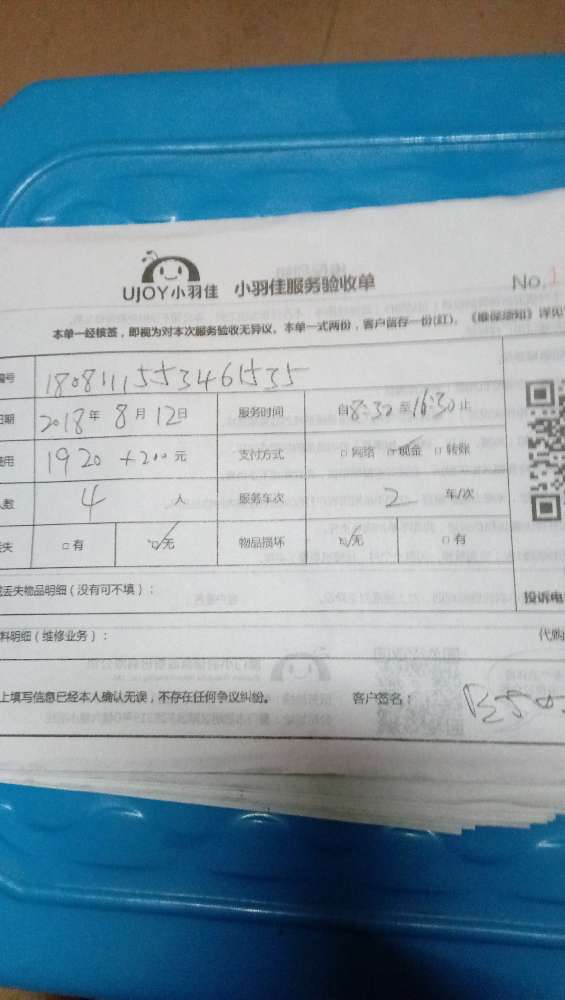 UJOY小羽佳 小羽佳服务验收单 No.1
本单一经核签，即视为对本次服务验收无异议。本单一式两份，客户留存一份(红)。《维保须知》详见
编号 180811155346
日期 2018年8月12日 服务时间 自8:30至16:30止
费用 1920+200元 支付方式 □网络 □现金 □转账
人数 4人 服务车次 2车/次
丢失 □有 □无 物品损坏 □无 □有
丢失物品明细（没有可不填）： 投诉电
料明细（维修业务）： 代购
上填写信息已经本人确认无误，不存在任何争议纠纷。 客户签名：